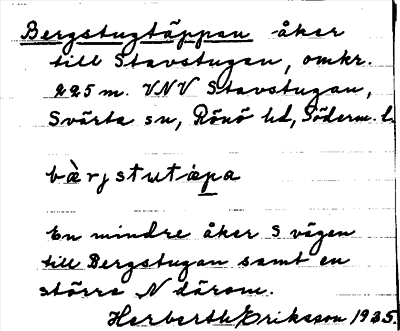 Bergstugtäppan åker
till Stavstugan, omkr.
225 m. VNV Stavstugan,
Svärta sn, Rönö hd, Söderm. l.
bæ̀rjstutæpa
En mindre åker S vägen
till Bergstugan samt en
större N därom.
Herberth Eriksson 1935.